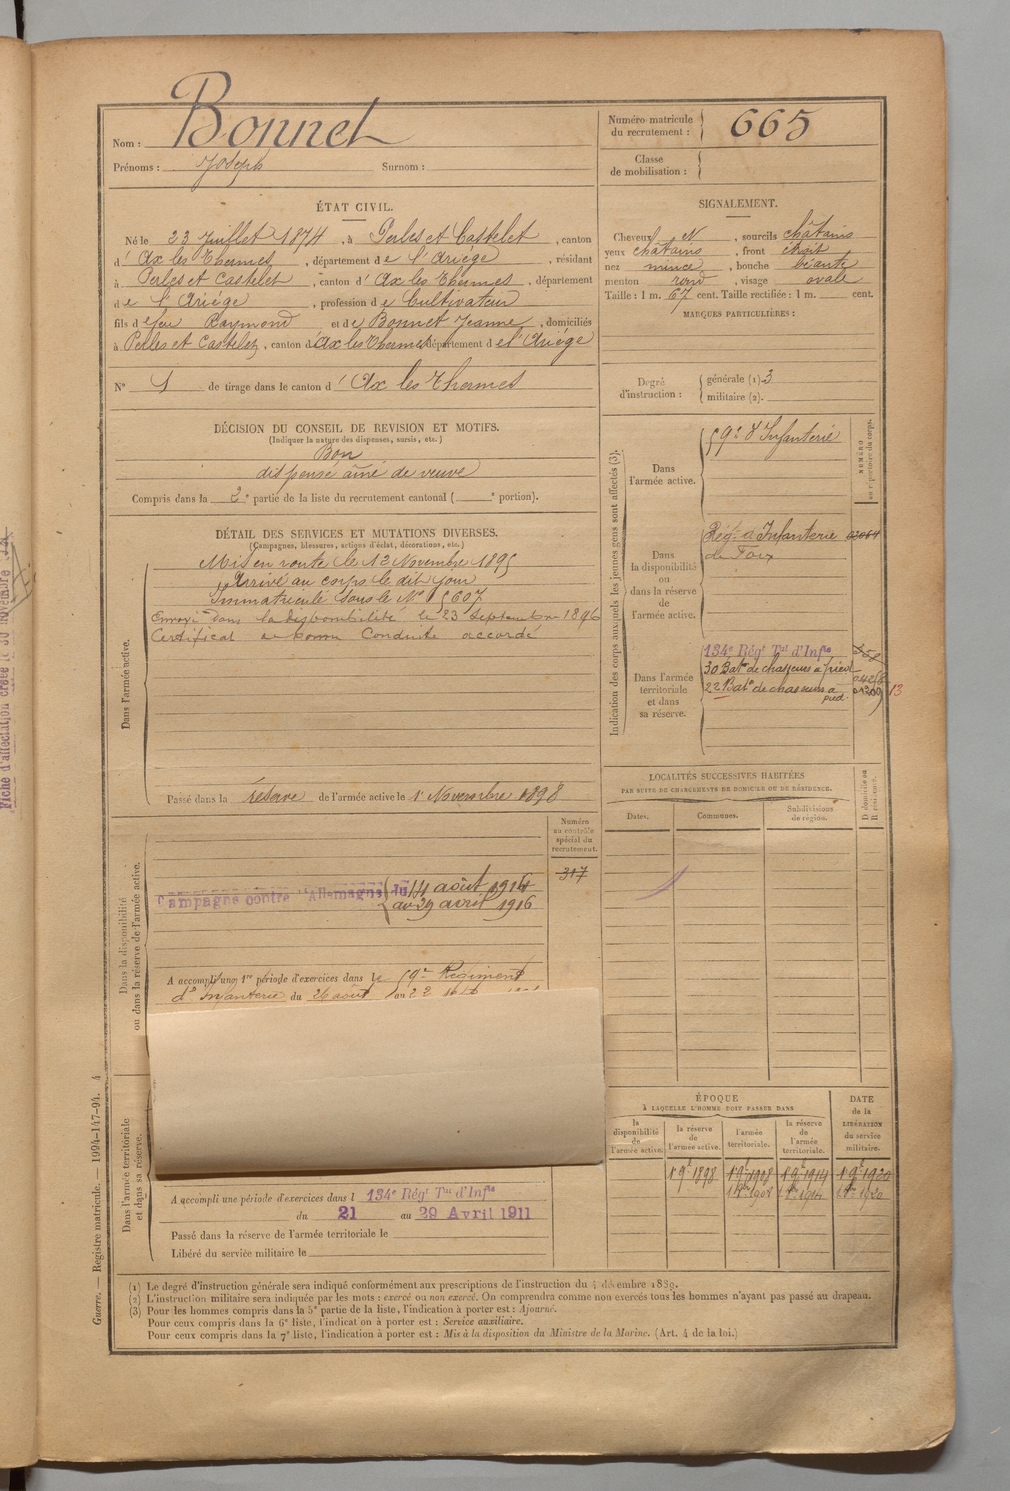 Nom : Bonnet
Prénoms : Joseph Surnom :
Numéro matricule du recrutement : 665
Classe de mobilisation :
ÉTAT CIVIL.
Né le 23 Juillet 1874, à Perles et Castelet, canton
d' Ax les Thermes, département de l'Ariège, résidant
à Perles et Castelet, canton d' Ax les Thermes, département
de l'Ariége, profession de Cultivateur
fils de feu Raymond et de Bonnet Jeanne, domiciliés
à Perles et Castelet, canton d'Ax les Thermes département de l'Ariège
N° 1 de tirage dans le canton d' Ax les Thermes
SIGNALEMENT.
Cheveux N, sourcils châtains
yeux châtains, front étroit
nez mince, bouche béante
menton rond, visage ovale
Taille : 1 m. 67 cent. Taille rectifiée : 1 m. cent.
MARQUES PARTICULIÈRES :
Degré d'instruction : générale (1). 3
militaire (2).
DÉCISION DU CONSEIL DE REVISION ET MOTIFS.
(Indiquer la nature des dispenses, sursis, etc.)
Bon
dispensé aîné de veuve
Compris dans la 2e partie de la liste du recrutement cantonal ( e portion).
DÉTAIL DES SERVICES ET MUTATIONS DIVERSES.
(Campagnes, blessures, actions d'éclat, décorations, etc.)
Dans l'armée active.
Mis en route le 12 Novembre 1895
Arrivé au corps le dit jour
Immatriculé sous le N° 5607
Envoyé dans la disponibilité le 23 Septembre 1896
Certificat de bonne Conduite accordé
Passé dans la réserve de l'armée active le 1er Novembre 1898
Indication des corps auxquels les jeunes gens sont affectés (3).
NUMÉRO au répertoire du corps.
Dans l'armée active.
59e d'Infanterie
Dans la disponibilité ou dans la réserve de l'armée active.
Régt d'Infanterie
de Foix
Dans l'armée territoriale et dans sa réserve.
134e Régt Tal d'Infie
30 Baton de chasseurs à pied
22 Baton de chasseurs à pied
13
LOCALITÉS SUCCESSIVES HABITÉES
PAR SUITE DE CHANGEMENTS DE DOMICILE OU DE RÉSIDENCE.
Dates. Communes. Subdivisions de région. D domicile ou R résidence.
Dans la disponibilité ou dans la réserve de l'armée active.
Numéro au contrôle spécial du recrutement.
317
Campagne contre l'Allemagne du 14 août 1914
au 29 avril 1916
A accompli une 1re période d'exercices dans le 59e Régiment
d'Infanterie du 26 août au 22
Dans l'armée territoriale et dans sa réserve.
A accompli une période d'exercices dans l 134e Régt Tal d'Infie
du 21 au 29 Avril 1911
Passé dans la réserve de l'armée territoriale le
Libéré du service militaire le
ÉPOQUE
À LAQUELLE L'HOMME DOIT PASSER DANS
la disponibilité de l'armée active. la réserve de l'armée active. l'armée territoriale. la réserve de l'armée territoriale.
DATE de la LIBÉRATION du service militaire.
1 9e 1898 1 9e 1908 1 9e 1914 1 9e 1920
(1) Le degré d'instruction générale sera indiqué conformément aux prescriptions de l'instruction du 4 décembre 1889.
(2) L'instruction militaire sera indiquée par les mots : exercé ou non exercé. On comprendra comme non exercés tous les hommes n'ayant pas passé au drapeau.
(3) Pour les hommes compris dans la 5e partie de la liste, l'indication à porter est : Ajourné.
Pour ceux compris dans la 6e liste, l'indication à porter est : Service auxiliaire.
Pour ceux compris dans la 7e liste, l'indication à porter est : Mis à la disposition du Ministre de la Marine. (Art. 4 de la loi.)
Guerre. — Registre matricule. — 1994-147-94. 4